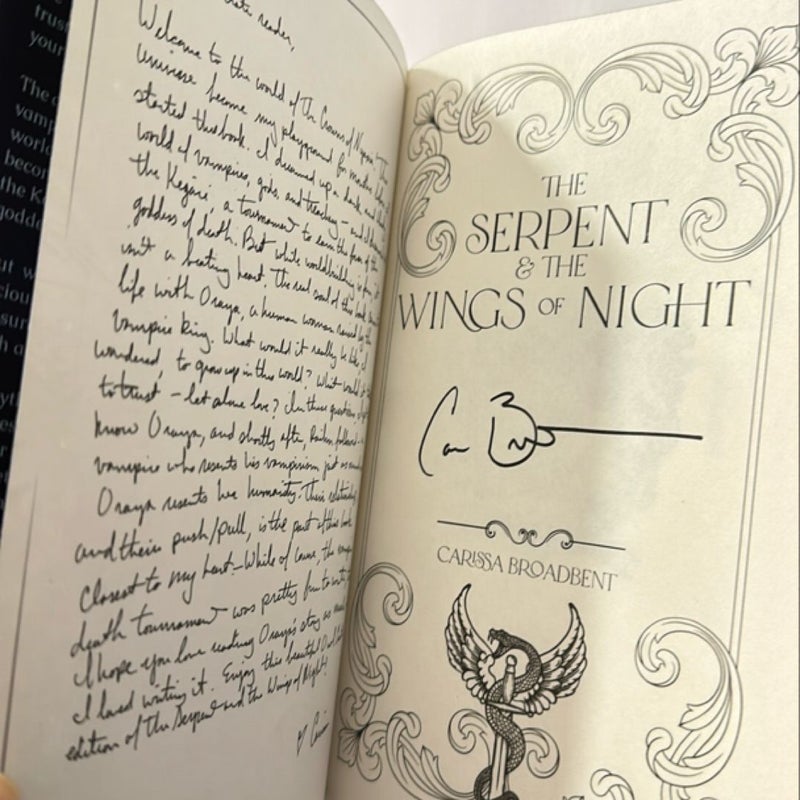 trus
your
The
vamp
world
beco
the K
godde
reader,
Welcome to the world of The Crowns of Nyaxia
universe became my playground for months
started this book. I dreamed up a dark and
world of vampires, gods, and treachery – and
the Kejari, a tournament to earn the favor of the
goddess of death. But while worldbuilding is fun, it
isn't a beating heart. The real soul of this book
life with Oraya, a human woman raised by the
vampire king. What would it really be like, I
wondered, to grow up in this world? What would it
to trust – let alone love? In those questions,
know Oraya, and shortly after, Raihn followed –
vampire who resents his vampirism just as
Oraya resents her humanity. Their relationship
and their push/pull, is the part of this book
closest to my heart – While of course, the
death tournament was pretty fun to write
I hope you love reading Oraya's story as
I loved writing it. Enjoy this beautiful
edition of The Serpent and the Wings of Night!
THE
SERPENT
& THE
WINGS OF NIGHT
CARISSA BROADBENT